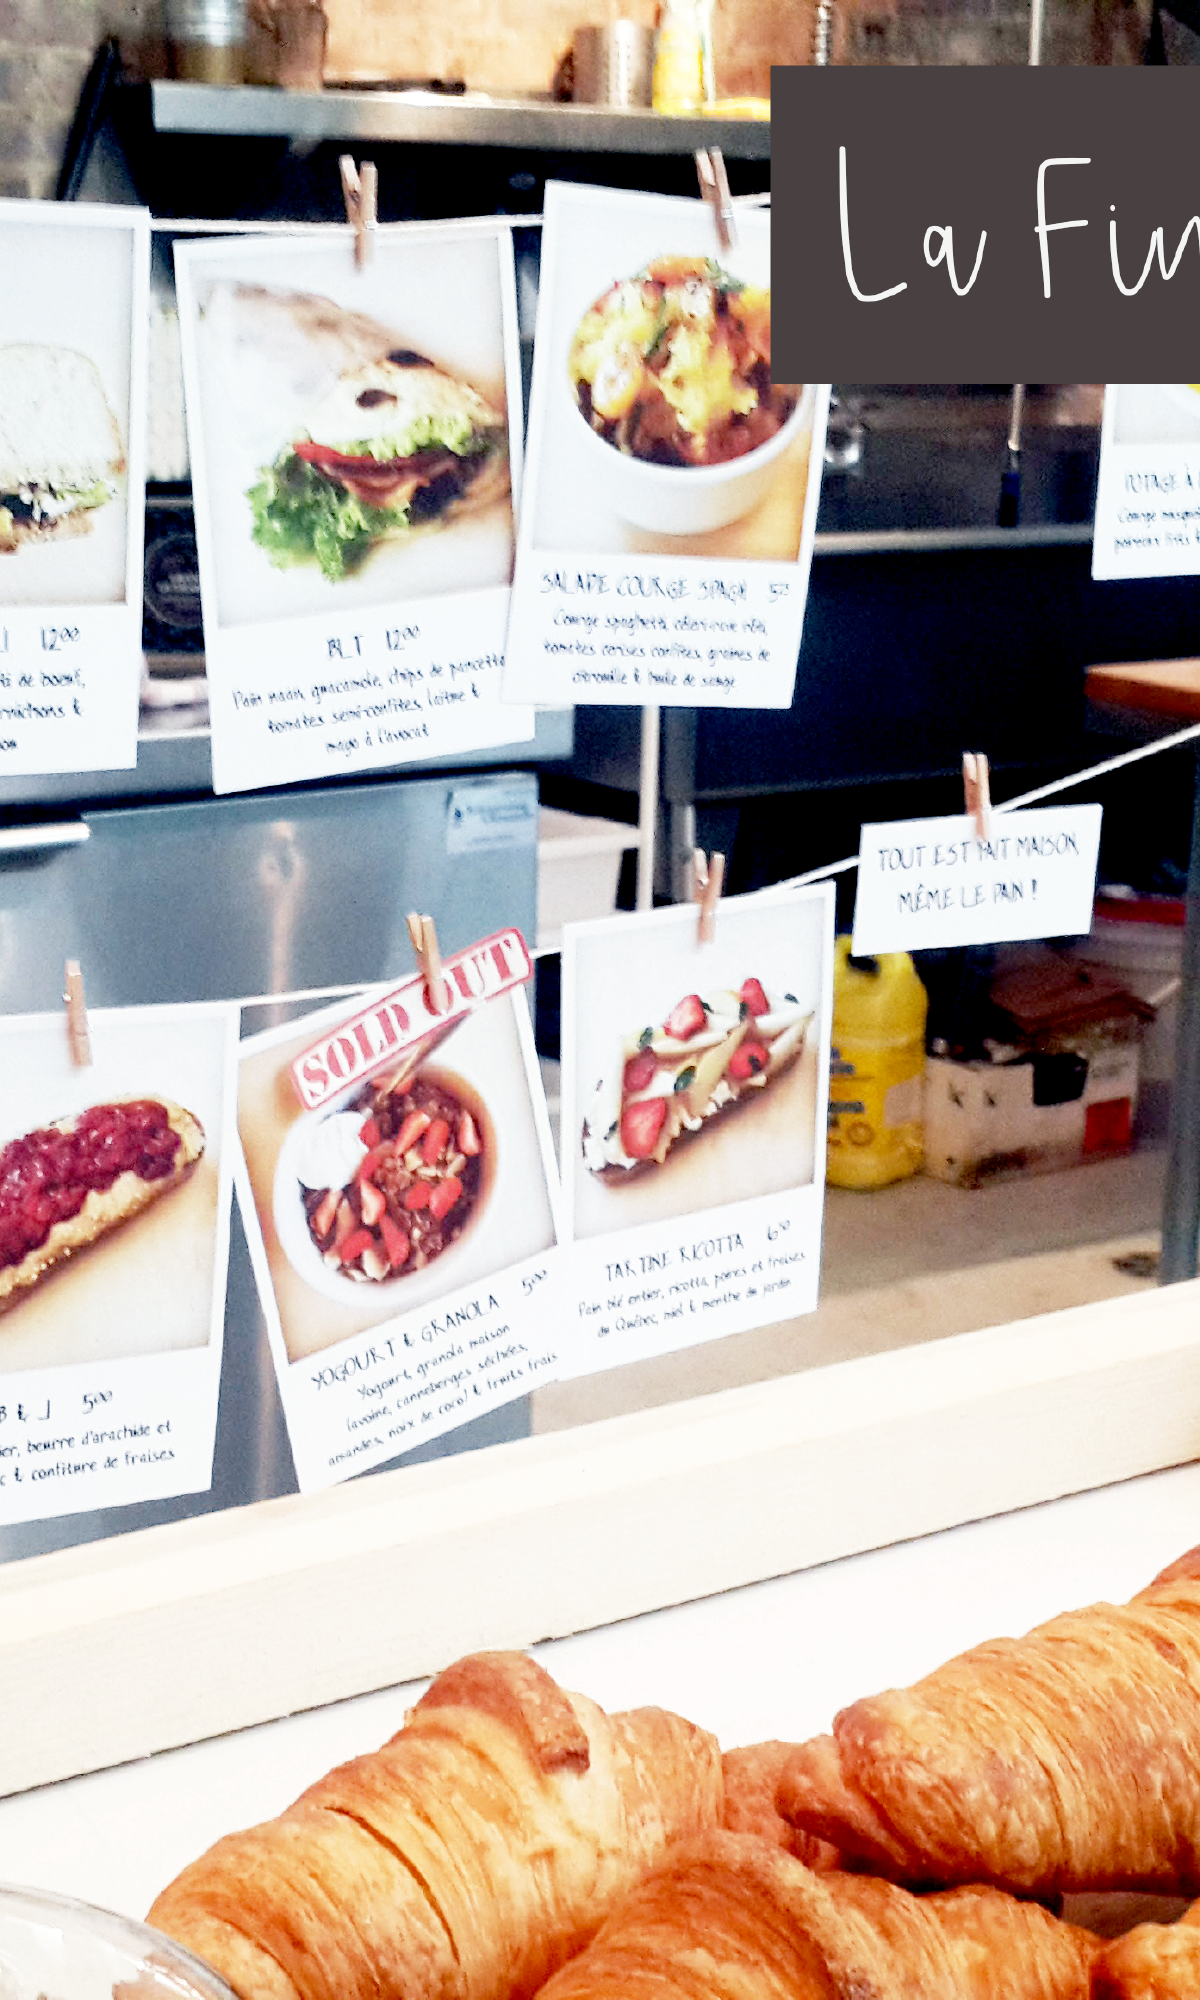 La Fin
12⁰⁰
de boeuf,
BLT 12⁰⁰
Pain naan, guacamole, chips de pancetta
tomates semi-confites, laitue &
mayo à l'avocat
SALADE COURGE SPAGH 5⁷⁵
Courge spaghetti, céleri-rave rôti,
tomates cerises confites, graines de
citrouille & huile de sauge
POTAGE À
Courge
TOUT EST FAIT MAISON,
MÊME LE PAIN !
B & J 5⁰⁰
beurre d'arachide et
& confiture de fraises
SOLD OUT
YOGOURT & GRANOLA 5⁰⁰
Yogourt, granola maison
(avoine, canneberges séchées,
amandes, noix de coco) & fruits frais
TARTINE RICOTTA 6⁵⁰
Pain blé entier, ricotta, poires et fraises
du Québec, miel & menthe du jardin